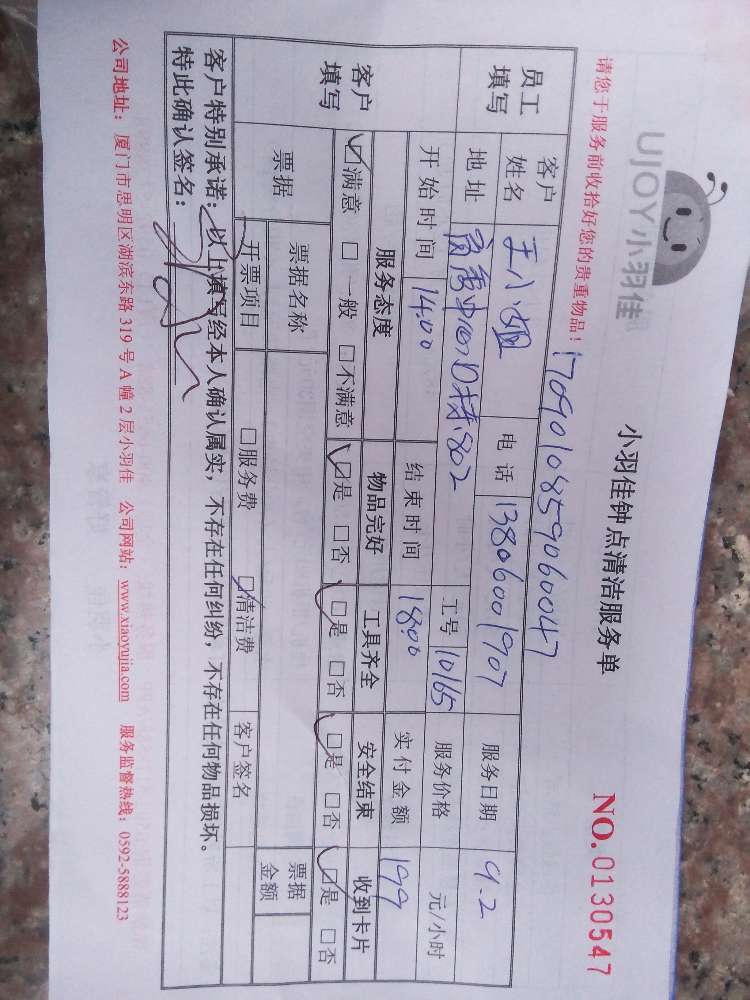 UJOY小羽佳
小羽佳钟点清洁服务单
NO.0130547
请您于服务前收拾好您的贵重物品！
1709010859060047
员工填写 客户姓名 王小姐 电话 13806001907 服务日期 9.2
地址 特802 工号 10165 服务价格 元/小时
开始时间 14:00 结束时间 18:00 实付金额 199
客户填写 服务态度 物品完好 工具齐全 安全结束 收到卡片
☑满意 □一般 □不满意 ☑是 □否 ☑是 □否 ☑是 □否 ☑是 □否
票据 票据名称 票据金额
开票项目 □服务费 ☑清洁费 客户签名
客户特别承诺：以上填写经本人确认属实，不存在任何纠纷，不存在任何物品损坏。
特此确认签名：
公司地址：厦门市思明区湖滨东路319号A幢2层小羽佳 公司网站：www.xiaoyujia.com 服务监督热线：0592-5888123